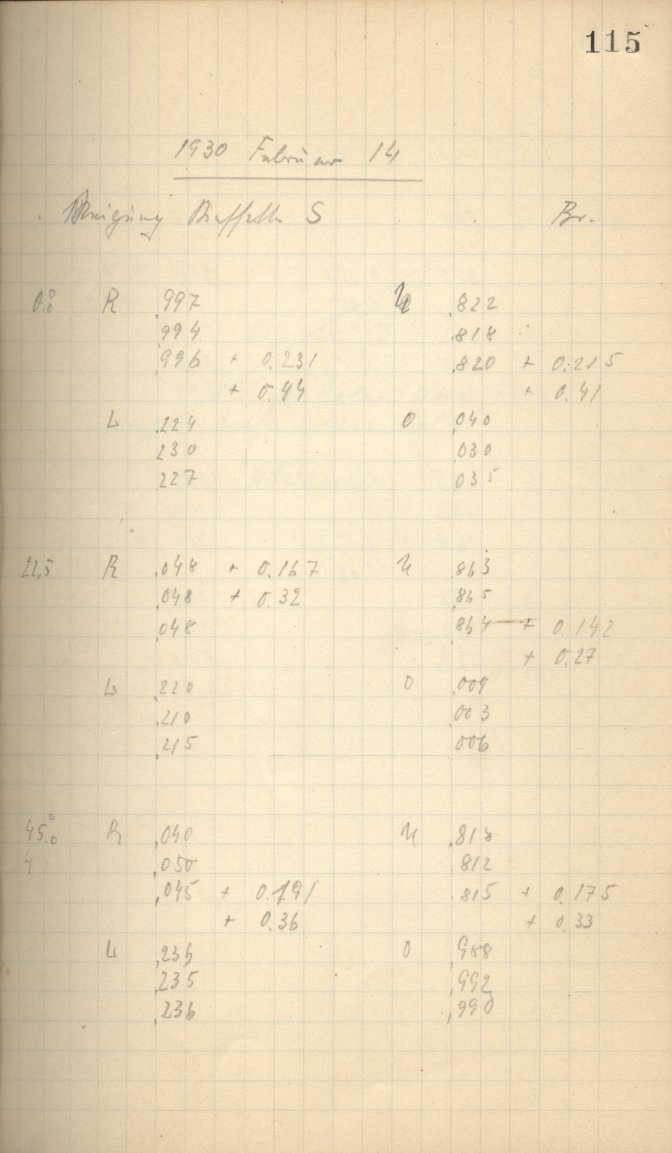 115
1930 Februar 14
Neigung S Br.
0.°0 R ,997 U ,822
,994 ,818
,996 + 0.231 ,820 + 0.215
+ 0.44 + 0.41
L ,224 O ,040
,230 ,030
,227 ,035
22.5 R ,048 + 0.167 U ,863
,048 + 0.32 ,865
,048 ,864 + 0.142
+ 0.27
L ,220 O ,009
,210 ,003
,215 ,006
45.°0 R ,040 U ,818
4 ,050 ,812
,045 + 0.191 ,815 + 0.175
+ 0.36 + 0.33
L ,236 O ,988
,235 ,992
,236 ,990